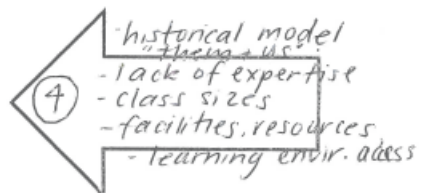 - historical model
"them + us"
- lack of expertise
4 - class sizes
- facilities, resources
- learning envir. access